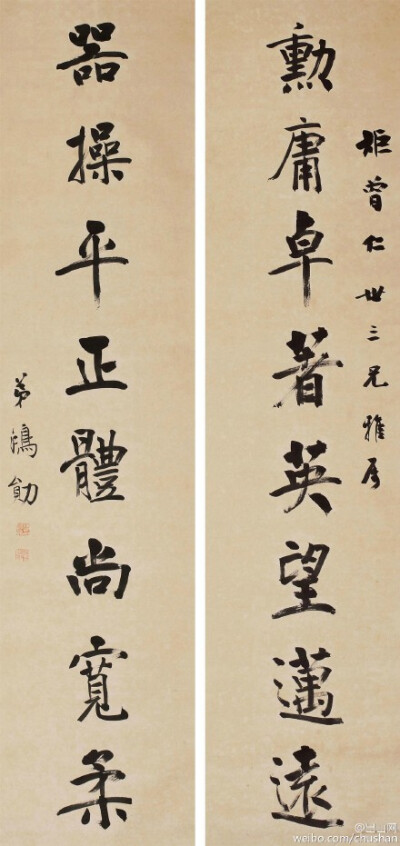 矩曾仁世三兄雅属
勳庸卓著英望邁遠
器操平正體尚寬柔
弟鴻勛
weibo.com/chushan